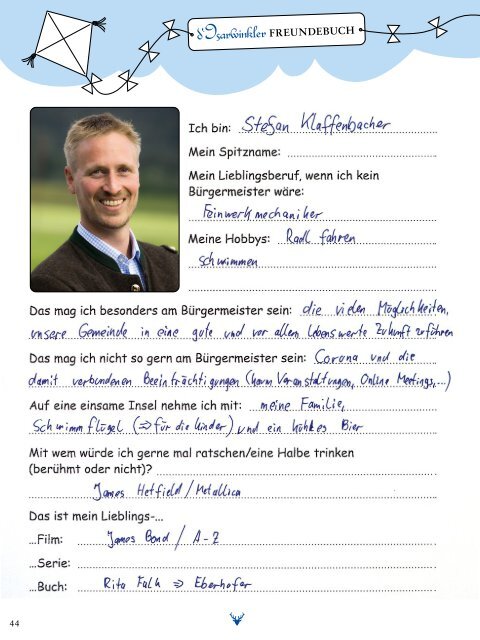 d'Isarwinkler FREUNDEBUCH
Ich bin: Stefan Klaffenbacher
Mein Spitzname:
Mein Lieblingsberuf, wenn ich kein
Bürgermeister wäre:
Feinwerkmechaniker
Meine Hobbys: Radl fahren
schwimmen
Das mag ich besonders am Bürgermeister sein: die vielen Möglichkeiten,
unsere Gemeinde in eine gute und vor allem lebenswerte Zukunft zu führen
Das mag ich nicht so gern am Bürgermeister sein: Corona und die
damit verbundenen Beeinträchtigungen (kaum Veranstaltungen, Online Meetings,...)
Auf eine einsame Insel nehme ich mit: meine Familie,
Schwimmflügel (⇒ für die Kinder) und ein kühles Bier
Mit wem würde ich gerne mal ratschen/eine Halbe trinken
(berühmt oder nicht)?
James Hetfield/Metallica
Das ist mein Lieblings-...
...Film: James Bond / A-Z
...Serie:
...Buch: Rita Falk ⇒ Eberhofer
44